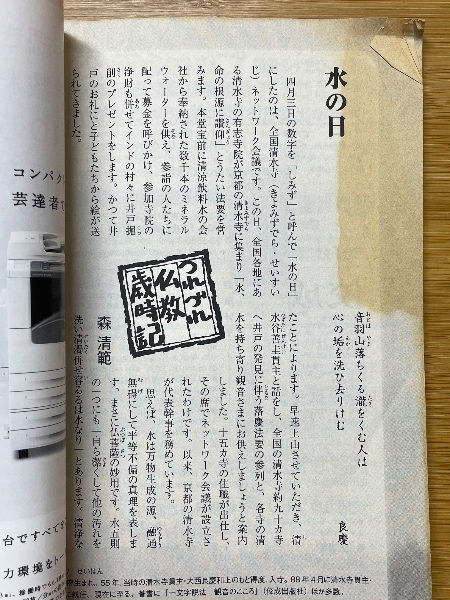 水の日
四月三日の数字を「しみず」と呼んで「水の日」
にしたのは、全国清水寺（きよみずでら・せいすい
じ）ネットワーク会議です。この日、全国各地にあ
る清水寺の有志寺院が京都の清水寺に集まり「水、
命の根源に讃仰」とうたい法要を営
みます。本堂宝前に清涼飲料水の会
社から奉納された数千本のミネラル
ウォーターを供え、参詣の人たちに
配って募金を呼びかけ、参加寺院の
浄財も併せてインドの村々に井戸掘
削のプレゼントをします。かつて井
戸のお礼にと子どもたちから絵が送
られてきました。
つれづれ
仏教
歳時記
森 清範
音羽山落ちくる瀧をくむ人は
心の垢を洗ひたりけむ
良慶
たことによります。早速上山させていただき、清
水谷善圭貫主と話をし、全国の清水寺約九十カ寺
へ井戸の発見に伴う落慶法要の参列と、各寺の清
水を持ち寄り観音さまにお供えしましょうと案内
しました。十五カ寺の住職が出仕し、
その席でネットワーク会議が設立さ
れたわけです。以来、京都の清水寺
が代表幹事を務めています。
思えば、水は万物生成の源、融通
無碍にして平等不偏の真理を表しま
す。まさに仏菩薩の妙用です。水五則
の一つにも「自ら潔くして他の汚れを
洗い清濁併せ容るるは水なり」とあります。清浄な
せいはん
生まれ。55年、当時の清水寺貫主・大西良慶和上のもと得度、入寺。88年4月に清水寺貫主・
に就任、現在に至る。著書に「一文字説法 観音のこころ」（佼成出版社）ほか多数。
コンパク
芸達者で
台ですべて
力環境をトー